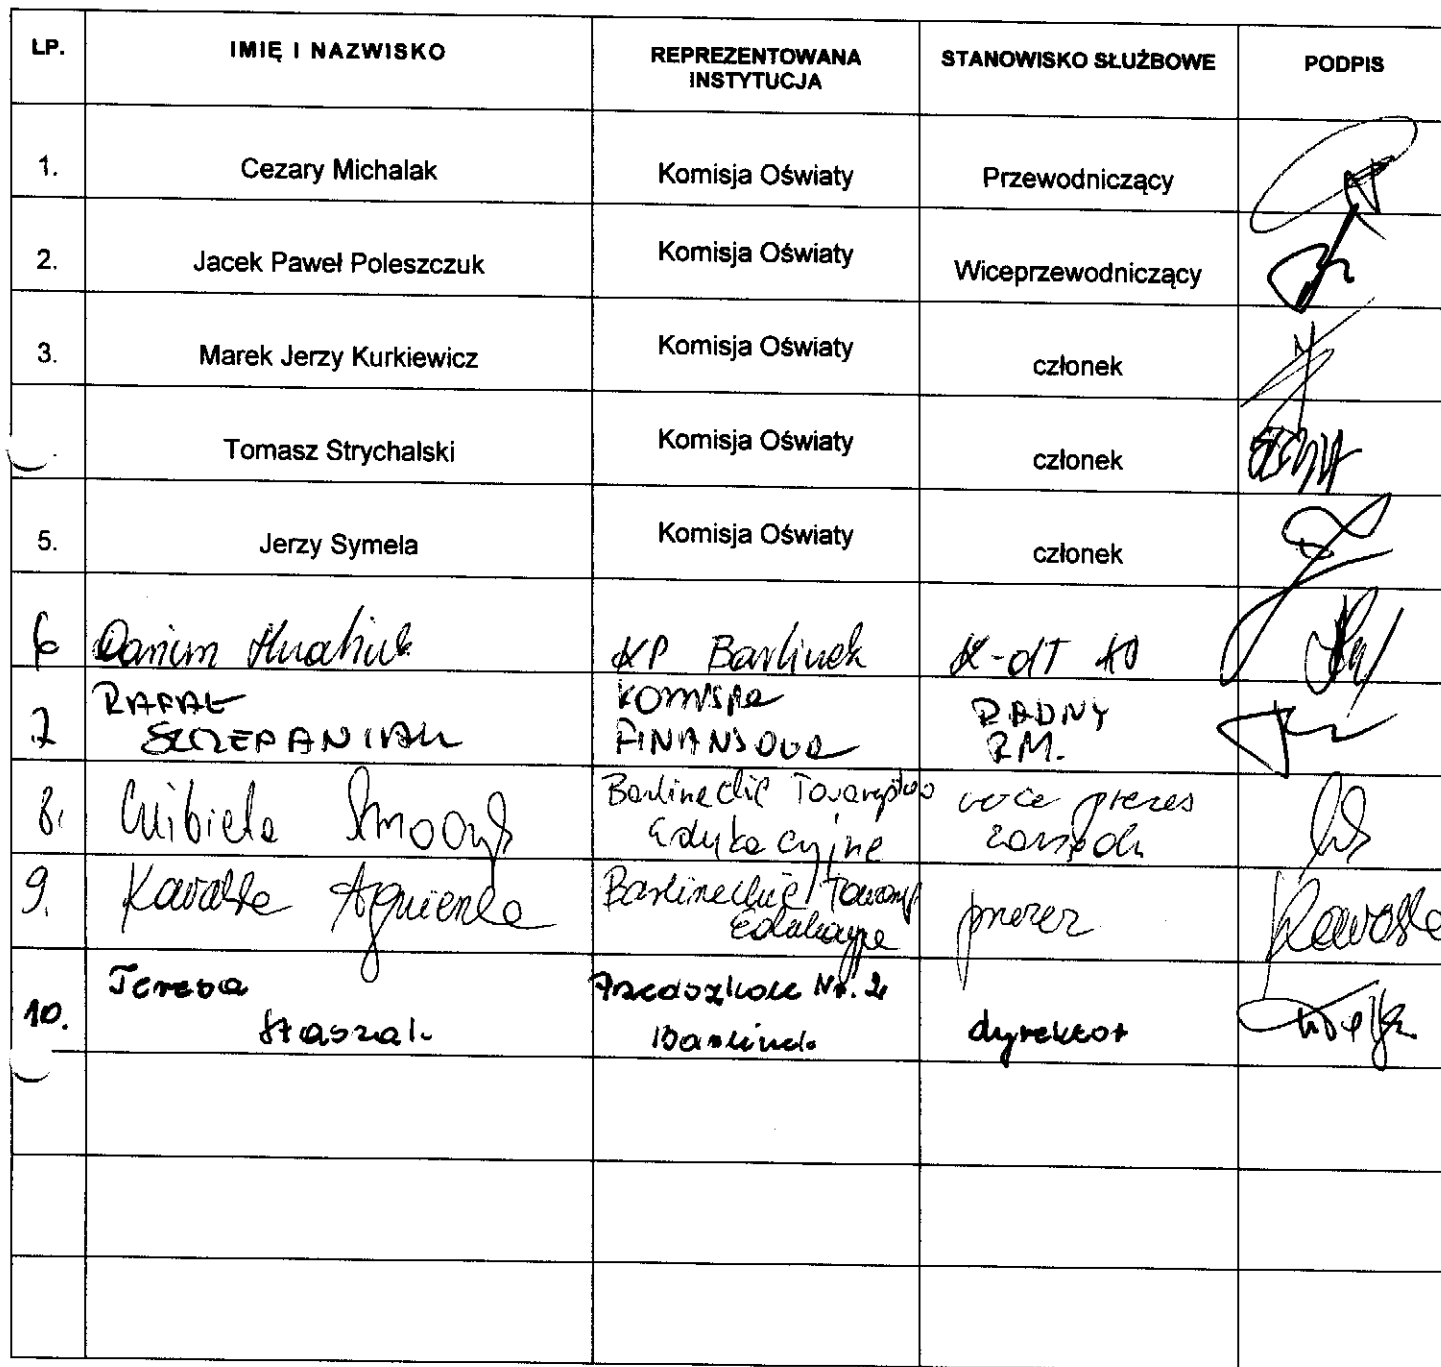 LP. IMIĘ I NAZWISKO REPREZENTOWANA INSTYTUCJA STANOWISKO SŁUŻBOWE PODPIS
1. Cezary Michalak Komisja Oświaty Przewodniczący
2. Jacek Paweł Poleszczuk Komisja Oświaty Wiceprzewodniczący
3. Marek Jerzy Kurkiewicz Komisja Oświaty członek
Tomasz Strychalski Komisja Oświaty członek
5. Jerzy Symela Komisja Oświaty członek
6 KP Barlinek K-dt
7 RAFAŁ SZCZEPANIAK KOMISJA FINANSOWA RADNY R.M.
8. Barlineckie Towarzystwo Edukacyjne prezes
9. Agnieszka Barlineckie Towarz. Edukacyjne prezes
10. Teresa Staszak Przedszkole Nr. 2 Barlinek dyrektor